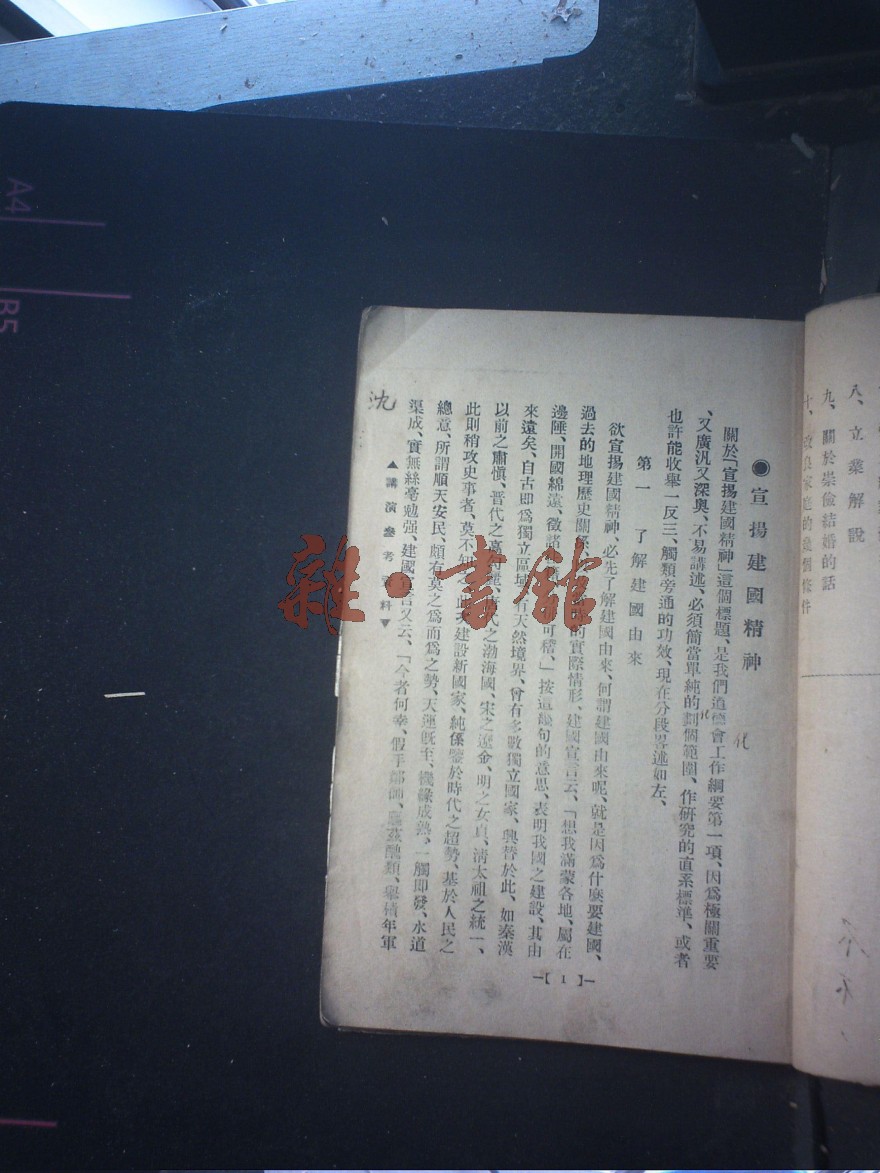 ●宣揚建國精神
關於「宣揚建國精神」這個標題、是我們道德會工作綱要第一項、因為極關重要
、又廣汎又深奧、不易講述、必須簡當單純的劃個範圍、作研究的直系標準、或者
也許能收舉一反三、觸類旁通的功效、現在分段畧述如左、
第一 了解建國由來
欲宣揚建國精神、必先了解建國由來、何謂建國由來呢、就是因為什麼要建國、
過去的地理歷史關係 的實際情形、建國宣言云、「想我滿蒙各地、屬在
邊陲、開國綿遠、徵諸 可稽、」按這幾句的意思、表明我國之建設、其由
來遠矣、自古即為獨立區域、有天然境界、曾有多數獨立國家、興替於此、如秦漢
以前之肅慎、晉代之高句麗、唐代之渤海國、宋之遼金、明之女真、清太祖之統一、
此則稍攻史事者、莫不知 此次建設新國家、純係鑒於時代之趨勢、基於人民之
總意、所謂順天安民、頗有莫之為而為之勢、天運既至、機緣成熟、一觸即發、水道
渠成、實無絲毫勉强、建國宣言又云、「今者何幸、假手鄰師、驅茲醜類、舉積年軍
▲講演參考資料▼
—【1】—
沈
化
化
八、立業解說
九、關於崇儉結婚的話
十、改良家庭的幾個條件
雜·書館
A4
B5